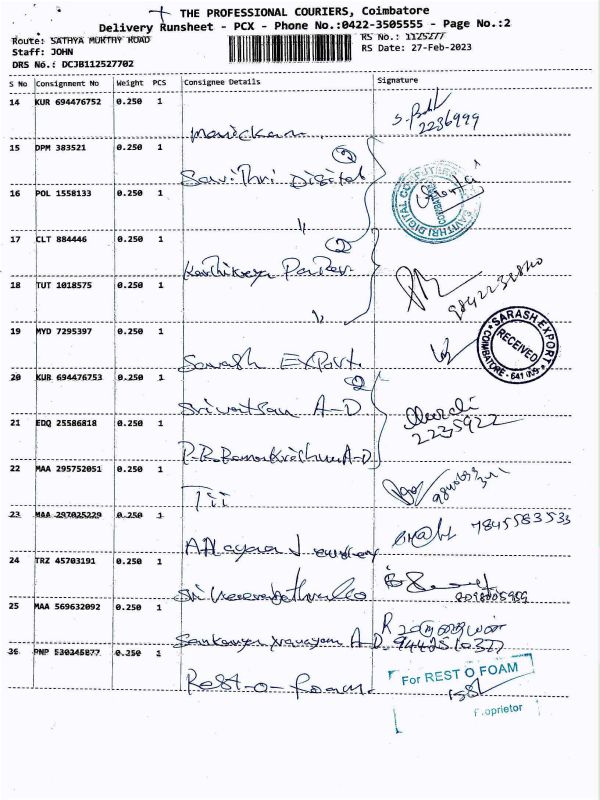 THE PROFESSIONAL COURIERS, Coimbatore
Delivery Runsheet - PCX - Phone No.:0422-3505555 - Page No.:2
Route: SATHYA MUKTHY ROAD
RS No.: 1125277
Staff: JOHN
RS Date: 27-Feb-2023
DRS No.: DCJB112527702
S No Consignment No Weight PCS Consignee Details Signature
14 KUR 694476752 0.250 1
2236999
Manickam
15 DPM 383521 0.250 1
2
Savithri Digital
16 POL 1558133 0.250 1
SAVITHRI DIGITAL COMPUTER
COIMBATORE
"
17 CLT 884446 0.250 1
2
18 TUT 1018575 0.250 1
19 MYD 7295397 0.250 1
SARASH EXPORT
RECEIVED
COIMBATORE - 641
Sarash Export
20 KUR 694476753 0.250 1
2
Srivatsan A-D
21 EDQ 25586818 0.250 1
2235922
P.R. Ramakrishnan A-D
22 MAA 295752051 0.250 1
Tii
23 MAA 297025229 0.250 1
7845583533
24 TRZ 45703191 0.250 1
25 MAA 569632092 0.250 1
A-D
36 PNP 530345877 0.250 1
Rest-o-foam
For REST O FOAM
Proprietor